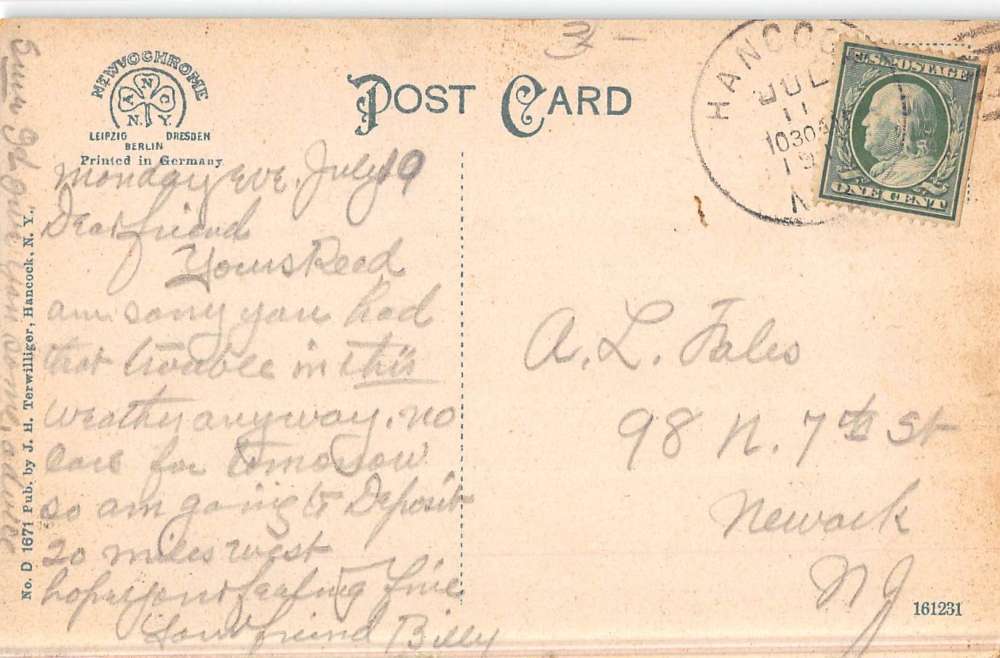 NEWVOCHROME
ANCO
N.Y.
LEIPZIG DRESDEN
BERLIN
Printed in Germany
POST CARD
HANCOC
JUL
11
1030A
19
N
U.S. POSTAGE
ONE CENT
Monday Eve. July 10
Dear friend
Yours Recd
am sorry you had
that trouble in this
weather anyway. no
cars for tomorrow
so am going to Deposit
20 miles west
hope your feeling fine
Your friend Billy
A. L. Fales
98 N. 7th St
Newark
NJ
No. D 1671 Pub. by J. H. Terwilliger, Hancock, N. Y.
161231